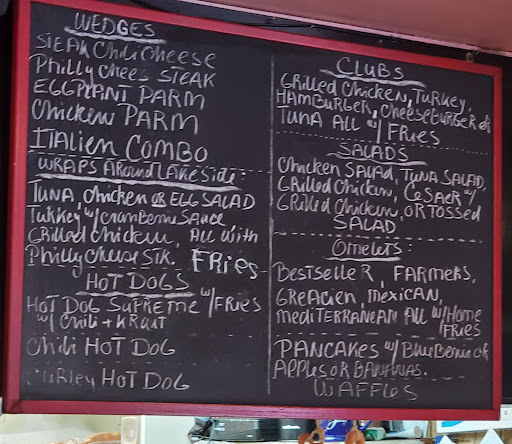 WEDGES
STEAK Chili Cheese
Philly Chees STEAK
EGGPlANT PARM
Chicken PARM
ITALIEN COMBO
WRAPS Around LAKESIDE:
TUNA, Chicken OR EGG SALAD
Turkey w/ cranberrie Sauce
Grilled Chicken, All With
Philly Cheese Stk. FRies
HOT DOGS
HOT DOG SUPREME w/ FRIES
w/ Chili + KRAUT
Chili HOT DOG
HOT DOG
CLUBS
Grilled Chicken, Turkey,
HAMBURGER, CheeseBURGER OR
TUNA All w/ FRies
SALADS
Chicken SALAD, TUNA SALAD,
GRilled Chicken, CeSAER w/
GRilled Chicken, OR TOSSED
SALAD
Omelets:
BESTSELLER, FARMERS,
GREACIEN, mexiCAN,
mediTERRANEAN All w/ Home
FRIES
PANCAKES w/ BlueBerrie OR
APPlES OR BANANNAS.
WAFFlES